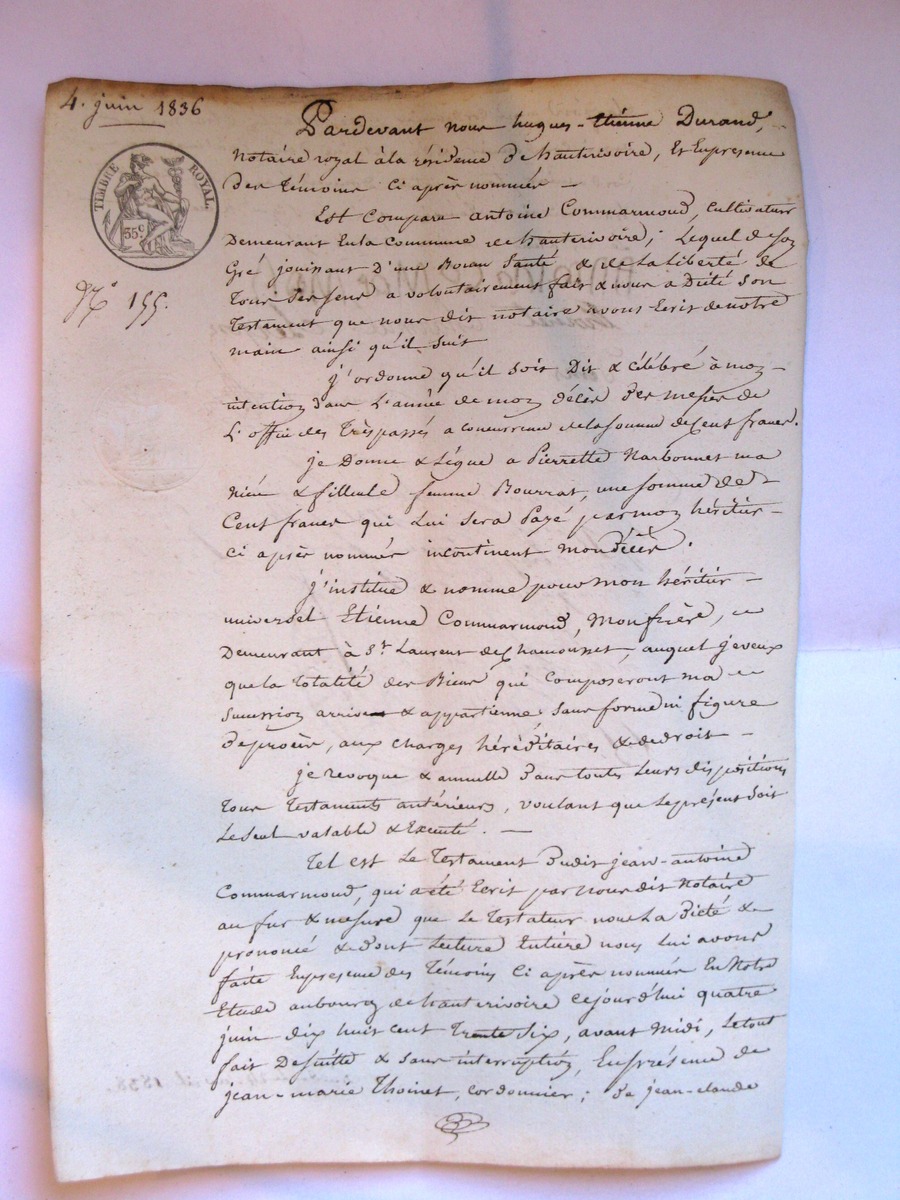 4. juin 1836
TIMBRE ROYAL.
35 c.
N.° 155.
Pardevant nous hugues-Etienne Durand,
Notaire royal à la résidence de hauterivoire, Et Enpresence
Des Témoins Ci après nommés —
Est Comparu antoine Commarmond, Cultivateur
Demeurant Enla Commune de hauterivoire; Lequel de son
Gré jouissant D'une Bonne Santé & de La Liberté de
Tous Ses Sens a volontairement fait & nous a Dicté Son
Testament que nous dit notaire avons Ecrit de notre
main ainsi qu'il suit
j'ordonne qu'il soit Dit & célébré à mon
intention dans L'année de mon décès Des messes de
L'office des Trèspassés a concurrence de la somme de Cent francs.
je Donne & Lègue a Pierrette Narbonnet ma
Nièce & filleule femme Bourrat, une somme de
Cent francs qui Lui Sera Payé par mon héritier
Ci après nommés incontinent mon Décès.
J'institue & nomme pour mon héritier
universel Etienne Commarmond, Mon frère,
Demeurant à St. Laurent de Chamousset, auquel je veux
que la Totalité des Biens qui Composeront ma
Succession arrive & appartienne Sans forme ni figure
de procès, aux charges héréditaires & de droit —
je revoque & annulle dans toutes Leurs dispositions
Tous Testaments antérieurs, voulant que Le présent Soit
Le Seul valable & Executé. —
Tel est Le Testament Dudit jean-antoine
Commarmond, qui a été Ecrit par Nous dit Notaire
au fur & mesure que Le Testateur nous La Dicté &
prononcé & dont Lecture Entière nous Lui avons
faite Enpresence des Témoins Ci après nommés En Notre
Etude au bourg de hauterivoire Cejourd'hui quatre
juin dix huit cent Trente Six, avant Midi, Le tout
fait De Suitte & Sans interruption, En présence de
jean-marie Thoinet, cordonnier; de jean-claude